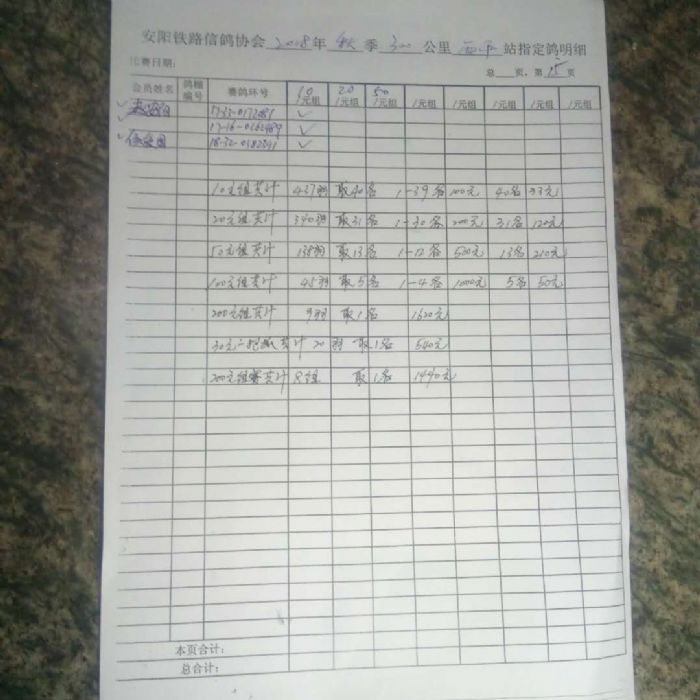 安阳铁路信鸽协会 2018年 秋 季 300 公里 西平 站指定鸽明细
比赛日期: 总 页, 第 15 页
会员姓名 鸽棚编号 赛鸽环号 10/元组 20/元组 50/元组 /元组 /元组 /元组 /元组 /元组
✓ ✓
17-16-0162489 ✓
✓ 18-32-0382391 ✓
10元组共计 437羽 取40名 1-39名 100元 40名 93元
20元组共计 340羽 取31名 1-30名 200元 31名 120元
50元组共计 138羽 取13名 1-12名 500元 13名 210元
100元组共计 45羽 取5名 1-4名 1000元 5名 50元
200元组共计 9羽 取1名 1620元
30元 共计 20羽 取1名 540元
200元组 共计 8组 取1名 1440元
本页合计:
总合计: